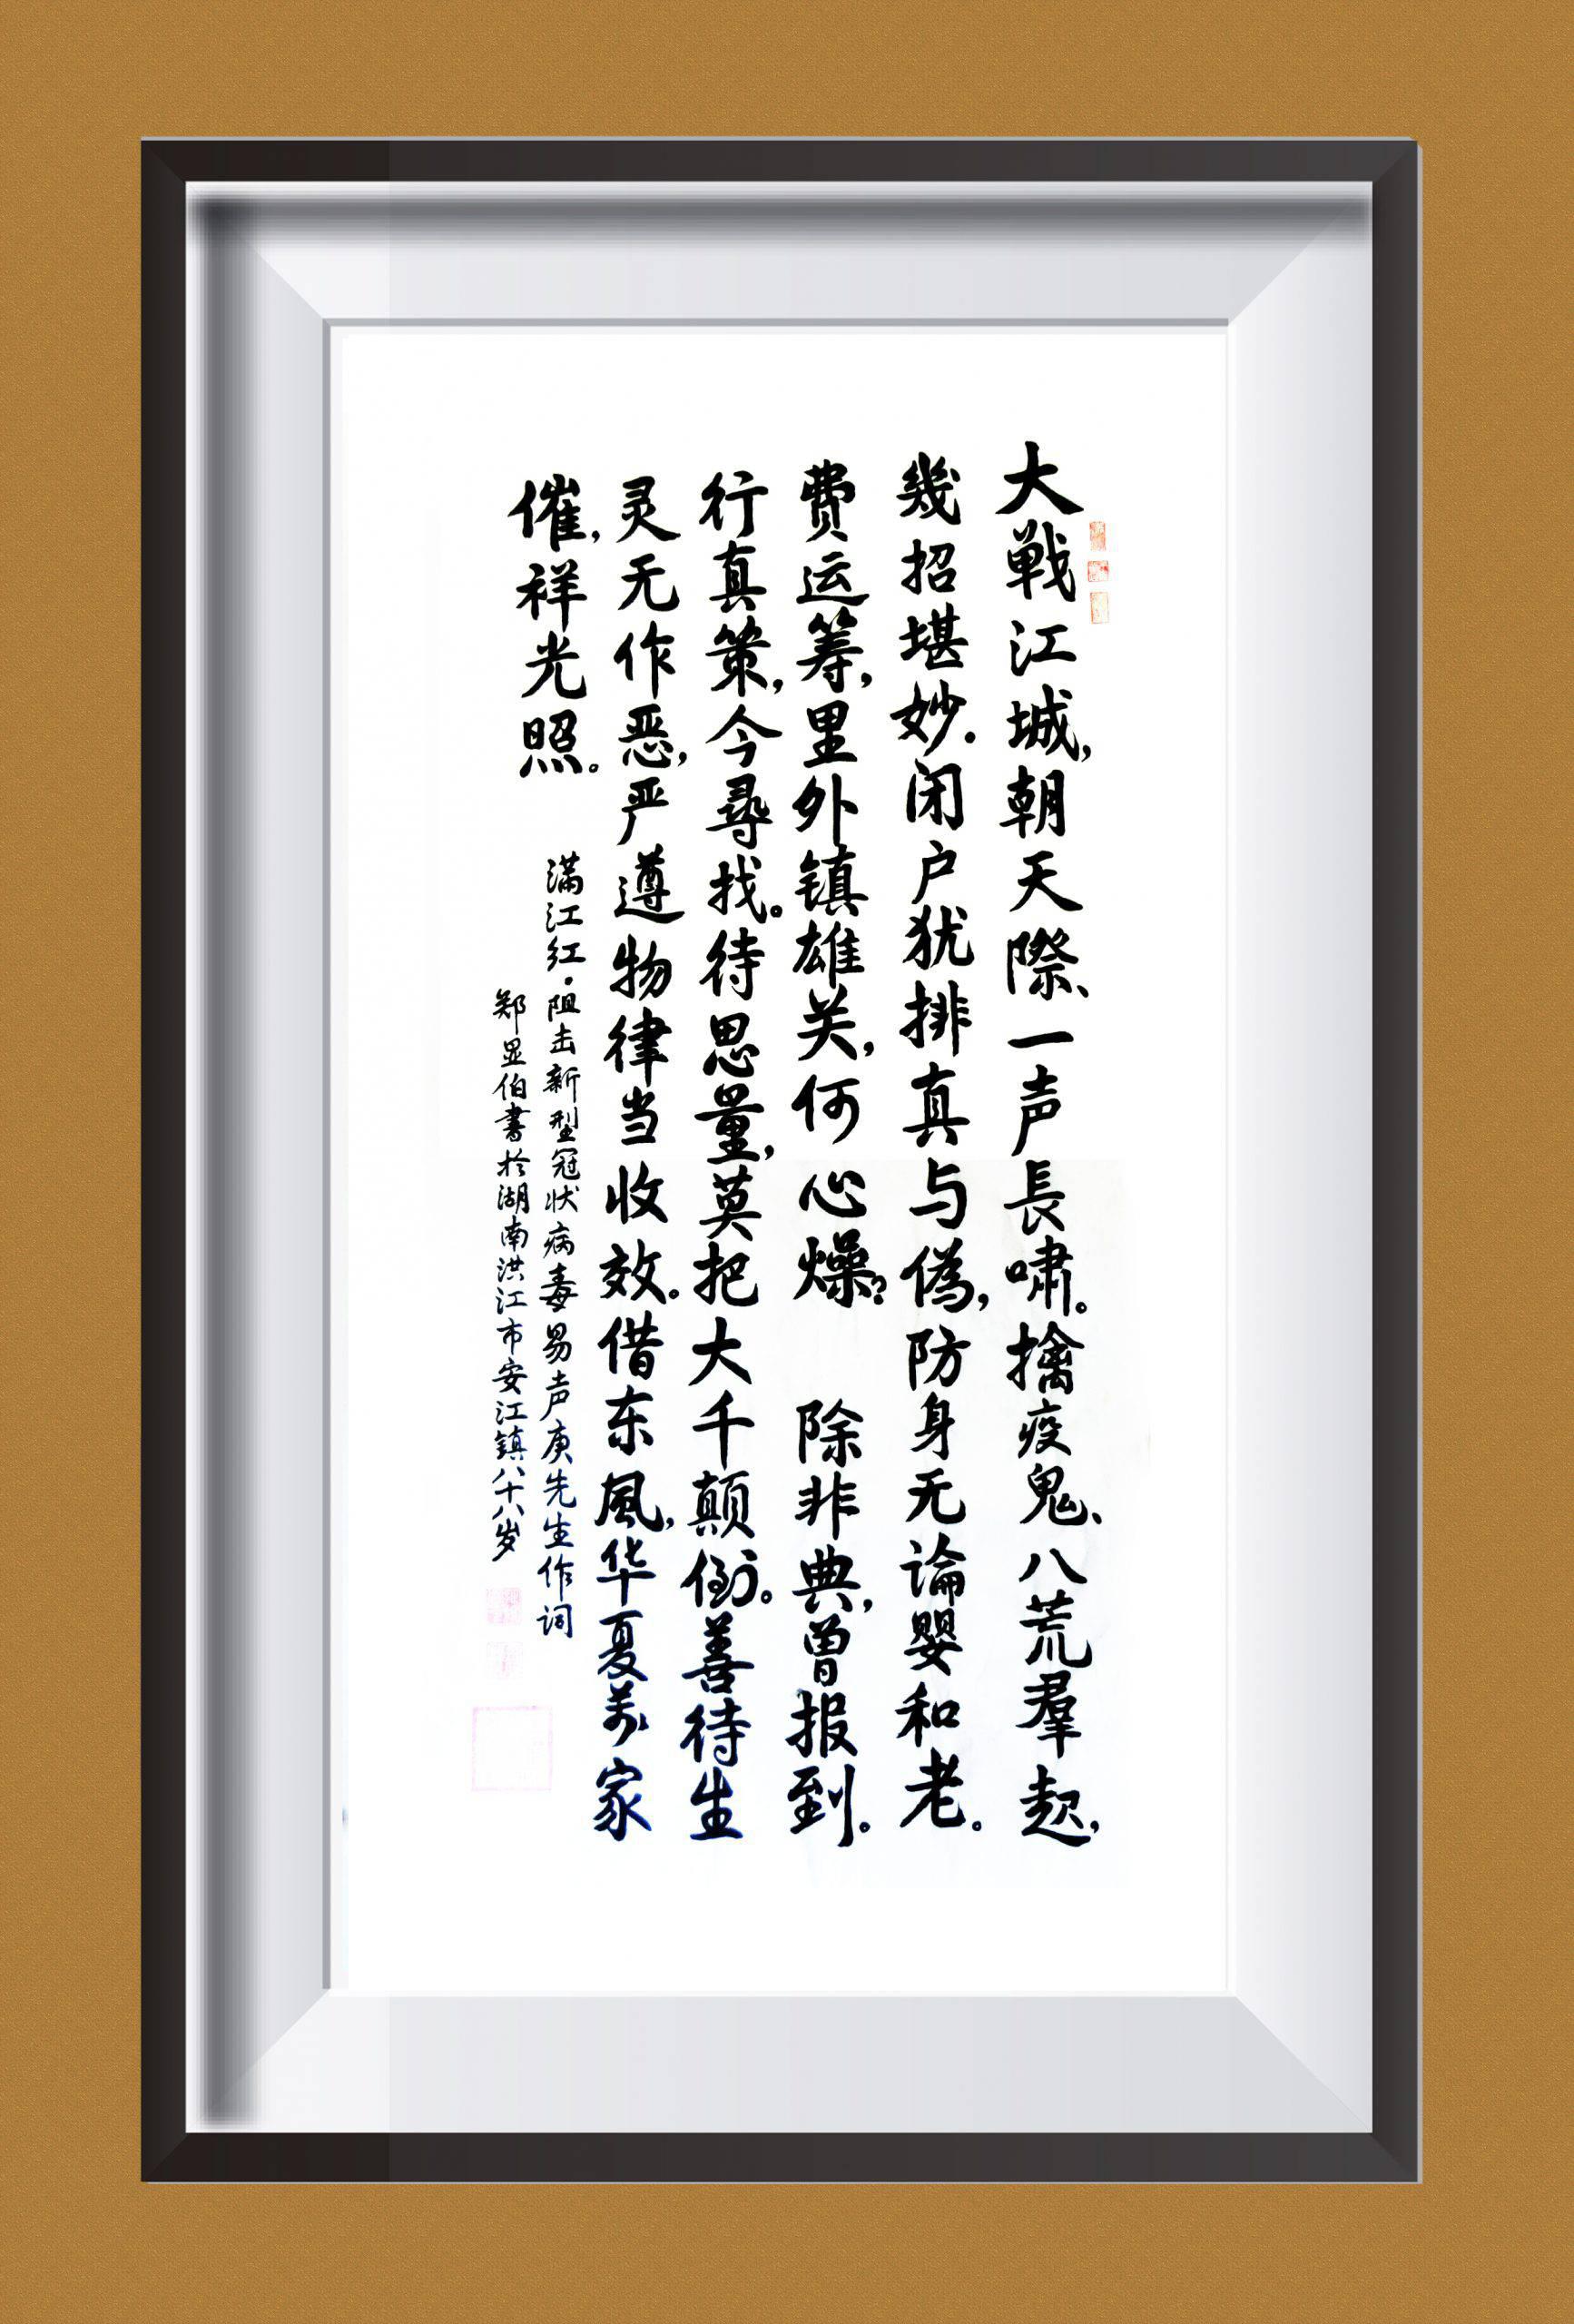 大戦江城，朝天際、一声長啸。擒疫鬼、八荒羣起，
幾招堪妙．闭户犹排真与偽，防身无论婴和老。
费运筹，里外镇雄关，何心燥？　除非典，曾报到。
行真策，今尋找。待思量，莫把大千颠倒。善待生
灵无作恶，严遵物律当收效。借东風，华夏万家
催，祥光照。
满江红·阻击新型冠状病毒易声庚先生作词
郑显伯書於湖南洪江市安江镇八十八岁